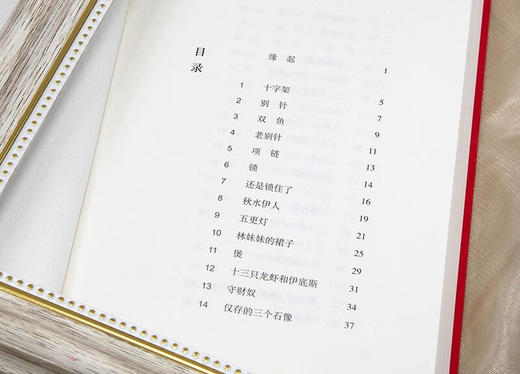 目录
缘起 1
1 十字架 5
2 别针 7
3 双鱼 9
4 老别针 11
5 项链 13
6 锁 14
7 还是锁住了 16
8 秋水伊人 19
9 五更灯 21
10 林妹妹的裙子 25
11 煲 29
12 十三只龙虾和伊底斯 31
13 守财奴 34
14 仅存的三个石像 37